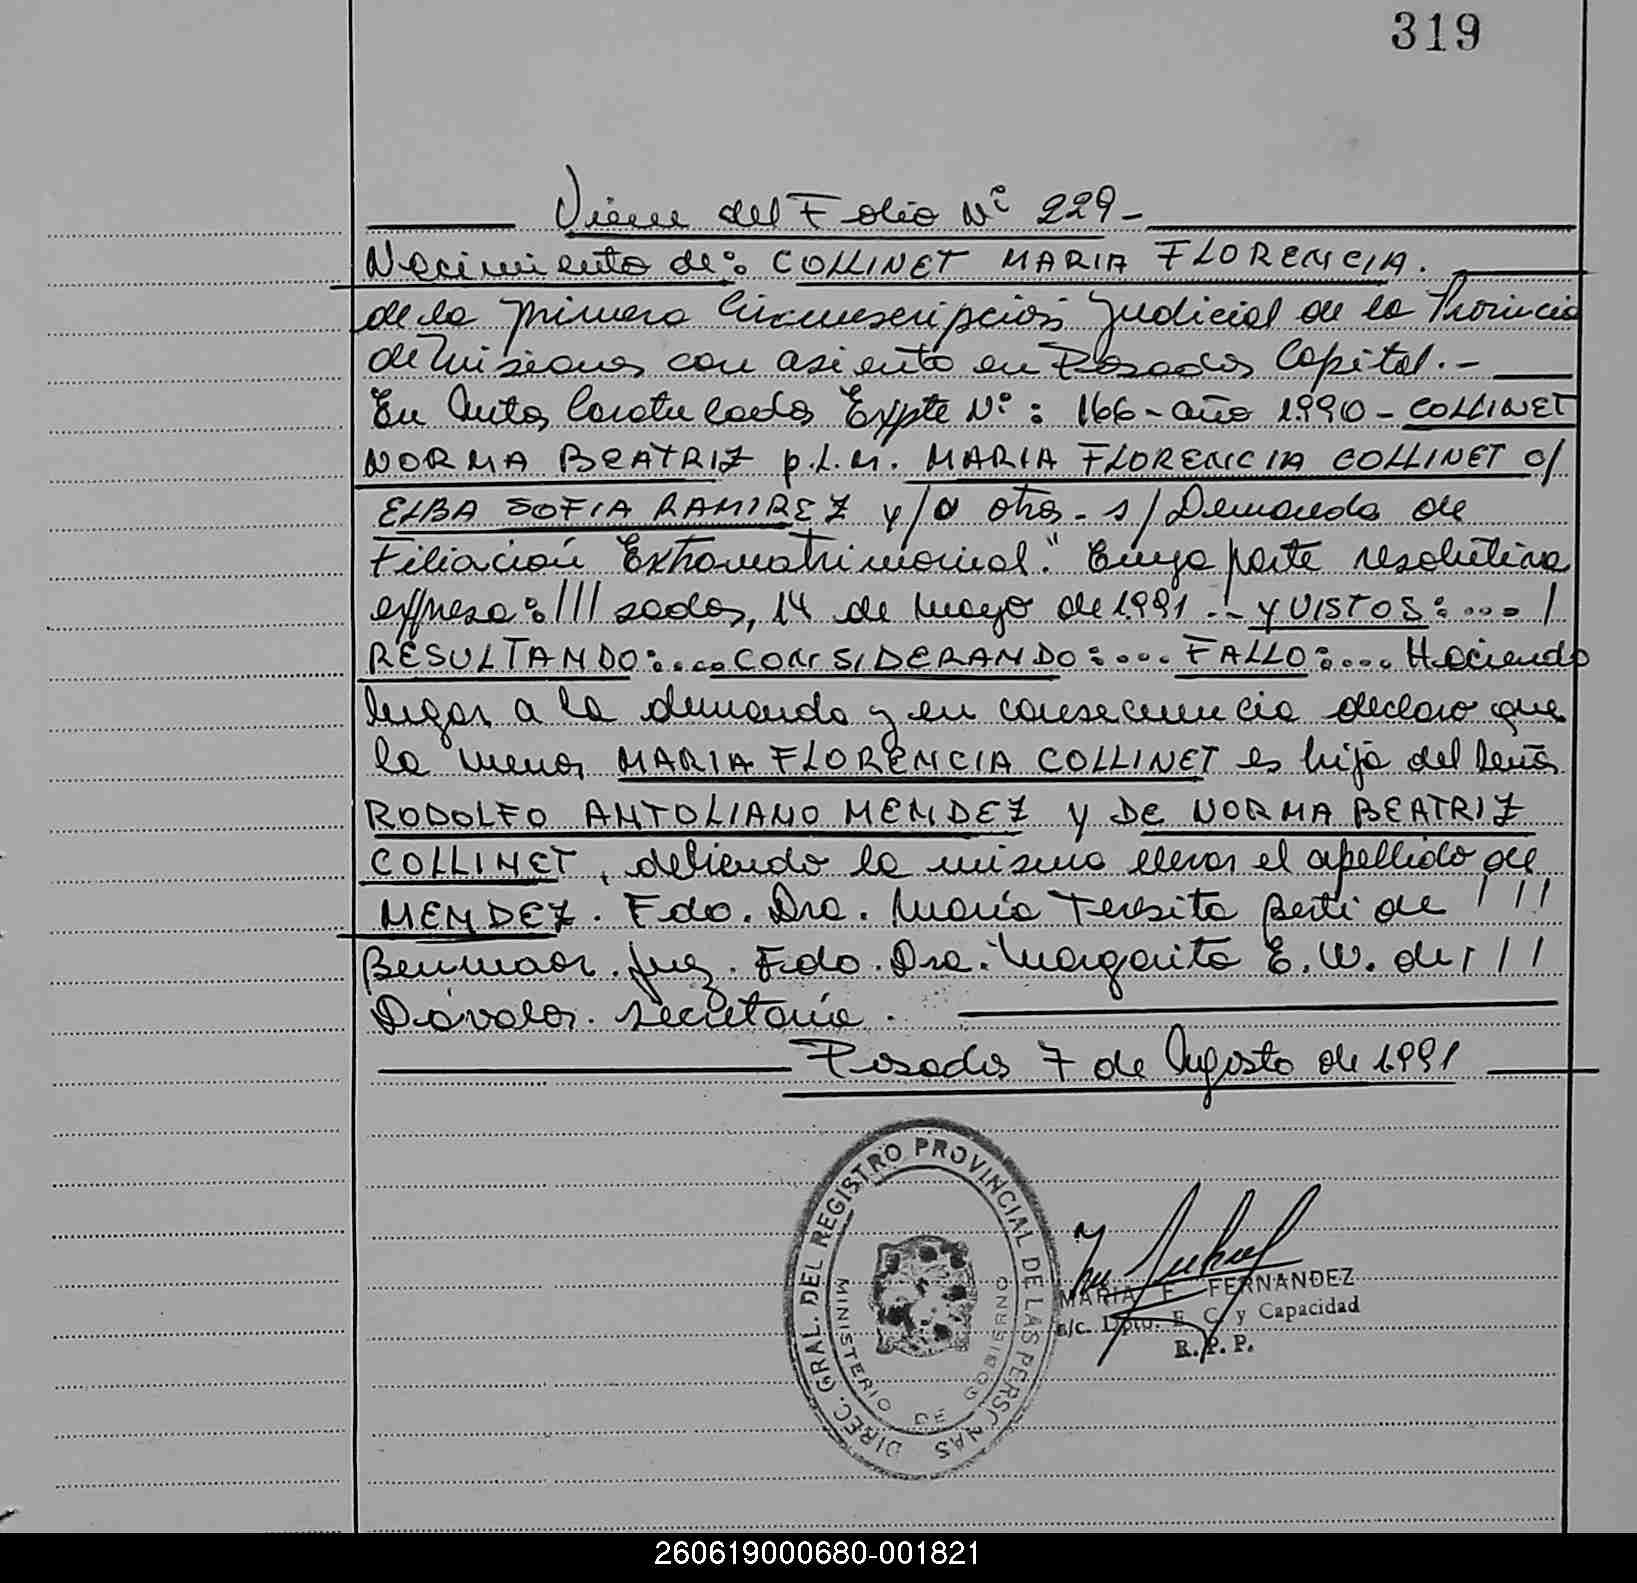 319
Viene del Folio Nº 229-
Nacimiento de: COLLINET MARIA FLORENCIA.
de la primera Circunscripción Judicial de la Provincia
de Misiones con asiento en Posadas Capital.-
En Autos Caratulados Expte Nº: 166-año 1990-COLLINET
NORMA BEATRIZ p.L.M. MARIA FLORENCIA COLLINET c/
ELBA SOFIA RAMIREZ y/o otros- s/ Demanda de
Filiación Extramatrimonial." Cuya parte resolutiva
expresa:///sadas, 14 de Mayo de 1991.- y VISTOS:.../
RESULTANDO:....CONSIDERANDO:... FALLO:.... Haciendo
lugar a la demanda y en consecuencia declaro que
la menor MARIA FLORENCIA COLLINET es hija del Señor
RODOLFO ANTOLIANO MENDEZ y DE NORMA BEATRIZ
COLLINET, debiendo la misma llevar el apellido de
MENDEZ. Fdo. Dra. María Teresita de ///
Juez. Fdo. Dra. Margarita E. W. de ///
Dávalos. Secretaria.
Posadas 7 de Agosto de 1991
DIREC. GRAL. DEL REGISTRO PROVINCIAL DE LAS PERSONAS
MINISTERIO DE GOBIERNO
MARIA F. FERNANDEZ
a/c. Dpto. E. C. y Capacidad
R. P. P.
260619000680-001821